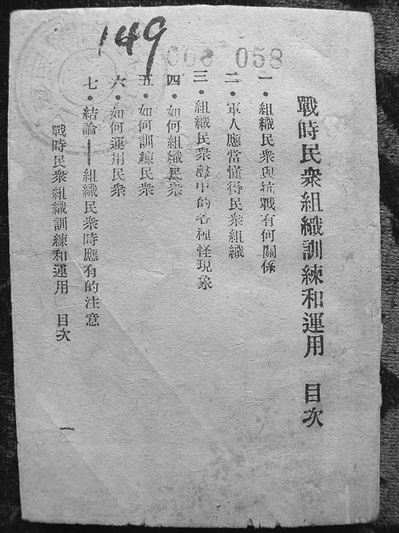 149
058
戰時民衆組織訓練和運用 目次
一・組織民衆與抗戰有何關係
二・軍人應當懂得民衆組織
三・組織民衆聲中的各種怪現象
四・如何組織民衆
五・如何訓練民衆
六・如何運用民衆
七・結論——組織民衆時應有的注意
戰時民衆組織訓練和運用 目次
一